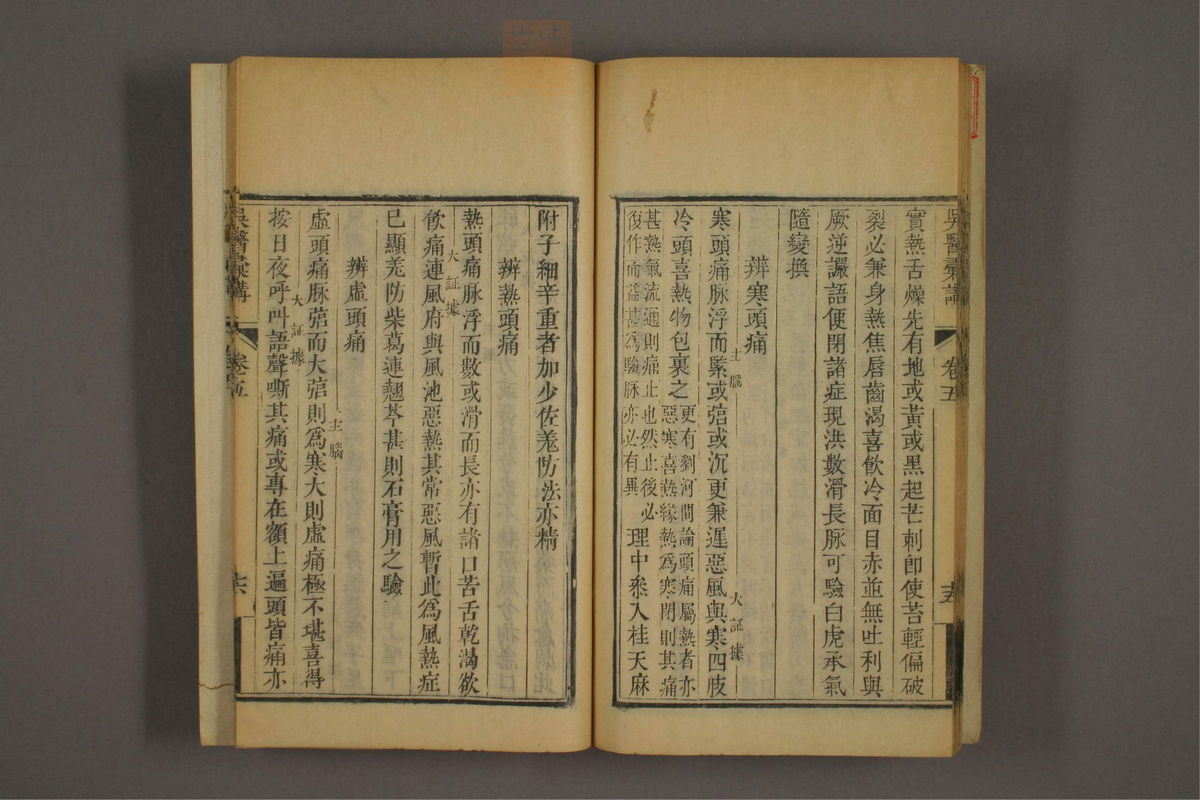 吳醫彙講
卷五
五
實熱舌燥先有地或黃或黑起芒刺卽使苔輕偏破
裂必兼身熱焦唇齒渴喜飲冷面目赤並無吐利與
厥逆讝語便閉諸症現洪數滑長脉可驗白虎承氣
隨變換
辨寒頭痛
主腦
大証據
寒頭痛脉浮而緊或弦或沉更兼遲惡風與寒四肢
冷頭喜熱物包裹之
更有劉河間論頭痛屬熱者亦
惡寒喜熱緣熱爲寒閉則其痛
甚熱氣流通則痛止也然止後必
復作而益甚爲驗脉亦必有異
理中叅入桂天麻
附子細辛重者加少佐羗防法亦精
辨熱頭痛
熱頭痛脉浮而數或滑而長亦有諸口苦舌乾渴欲
大証據
飲痛連風府與風池惡熱其常惡風暫此爲風熱症
已顯羗防柴葛連翹芩甚則石膏用之驗
辨虛頭痛
主腦
虛頭痛脉弦而大弦則爲寒大則虛痛極不堪喜得
大証據
按日夜呼叫語聲嘶其痛或專在額上遍頭皆痛亦
吳醫彙講
卷五
六